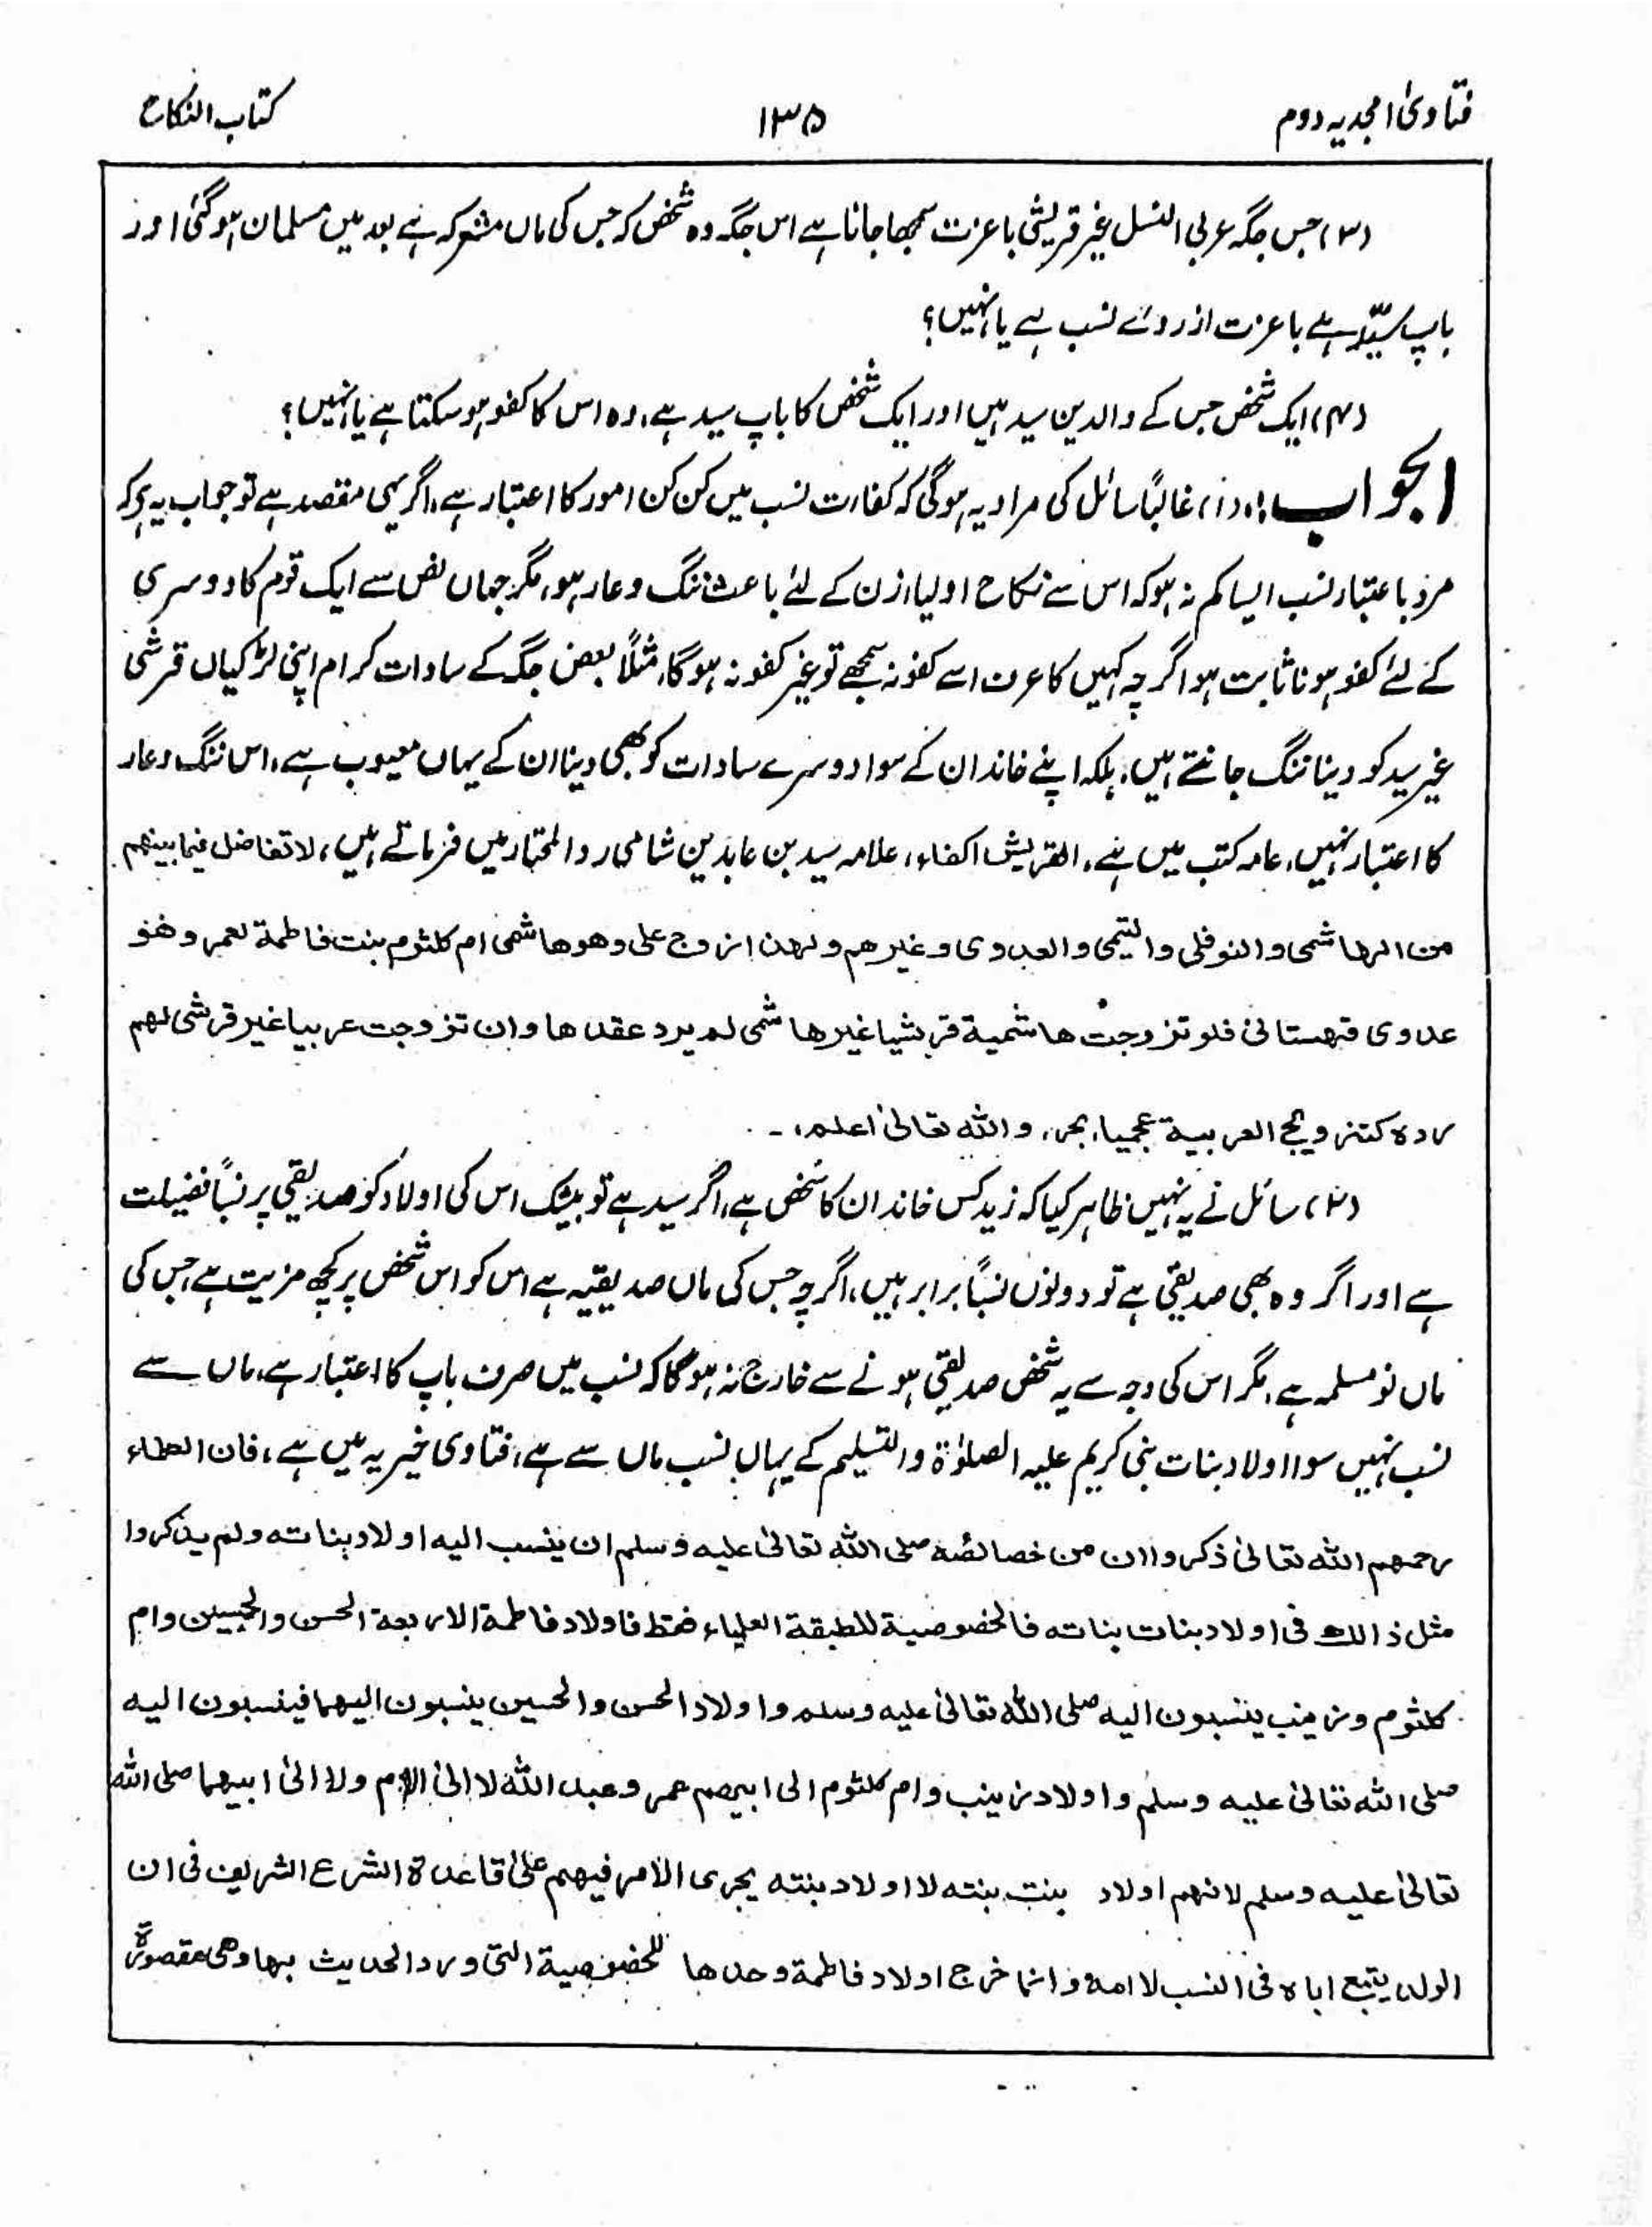 فتاویٰ امجدیہ دوم ۱۳۵ کتاب النکاح
(۳) جس جگہ عربی النسل غیر قریشی باعزت سمجھا جاتا ہے اس جگہ وہ شخص کہ جس کی ماں مشرکہ ہے بعد میں مسلمان ہو گئی اور
باپ سیّد ہے باعزت از روئے نسب ہے یا نہیں؟
(۴) ایک شخص جس کے والدین سید ہیں اور ایک شخص کا باپ سید ہے، وہ اس کا کفو ہو سکتا ہے یا نہیں؟
الجواب: (۱) غالباً سائل کی مراد یہ ہوگی کہ کفارت نسب میں کن کن امور کا اعتبار ہے، اگر یہی مقصد ہے تو جواب یہ ہے کہ
مرد باعتبار نسب ایسا کم نہ ہو کہ اس سے نکاح اولیاء زن کے لئے باعث ننگ و عار ہو، مگر جہاں نص سے ایک قوم کا دوسری
کے لئے کفو ہونا ثابت ہو اگرچہ کہیں کا عرف اسے کفو نہ سمجھے تو غیر کفو نہ ہوگا، مثلاً بعض جگہ کے سادات کرام اپنی لڑکیاں قرشی
غیر سید کو دینا ننگ جانتے ہیں، بلکہ اپنے خاندان کے سوا دوسرے سادات کو بھی دینا ان کے یہاں معیوب ہے، اس ننگ و عار
کا اعتبار نہیں، عامہ کتب میں ہے، القریش اکفاء، علامہ سید بن عابدین شامی رد المحتار میں فرماتے ہیں، لا تفاضل فیما بینهم
من الهاشمی والنوفلی والتیمی والعدوی وغیرهم ولهذا زوج علی وهو هاشمی ام کلثوم بنت فاطمة لعمر وهو
عدوی قهستانی فلو تزوجت هاشمیة قرشیا غیر هاشمی لم یرد عقدها وان تزوجت عربیا غیر قرشی لهم
ردہ کتزویج العربیة عجمیا، بحر، واللہ تعالیٰ اعلم، ۔
(۲) سائل نے یہ نہیں ظاہر کیا کہ زید کس خاندان کا شخص ہے، اگر سید ہے تو بیشک اس کی اولاد کو صدیقی پر نسباً فضیلت
ہے اور اگر وہ بھی صدیقی ہے تو دونوں نسباً برابر ہیں، اگرچہ جس کی ماں صدیقیہ ہے اس کو اس شخص پر کچھ مزیت ہے جس کی
ماں نو مسلمہ ہے، مگر اس کی وجہ سے یہ شخص صدیقی ہونے سے خارج نہ ہوگا کہ نسب میں صرف باپ کا اعتبار ہے، ماں سے
نسب نہیں سوا اولاد بنات نبی کریم علیہ الصلوٰۃ والتسلیم کے یہاں نسب ماں سے ہے، فتاوی خیریہ میں ہے، فان العلماء
رحمهم اللہ تعالیٰ ذکروا ان من خصائصه صلی اللہ تعالیٰ علیه وسلم ان ینسب الیه اولاد بناته ولم یذکروا
مثل ذالک فی اولاد بنات بناته فالخصوصیة للطبقة العلیاء فقط فاولاد فاطمة الاربعة الحسن والحسین وام
کلثوم وزینب ینسبون الیه صلی اللہ تعالیٰ علیه وسلم واولاد الحسن والحسین ینسبون الیهما فینسبون الیه
صلی اللہ تعالیٰ علیه وسلم واولاد زینب وام کلثوم الی ابیهم عمر وعبد اللہ لا الیٰ الام ولا الیٰ ابیهما صلی اللہ
تعالیٰ علیه وسلم لانهم اولاد بنت بنته لا اولاد بنته یجری الامر فیهم علیٰ قاعدة الشرع الشریف فی ان
الولد یتبع اباہ فی النسب لا امه وانما خرج اولاد فاطمة وحدها للخصوصیة التی ورد الحدیث بها وهی مقصورة